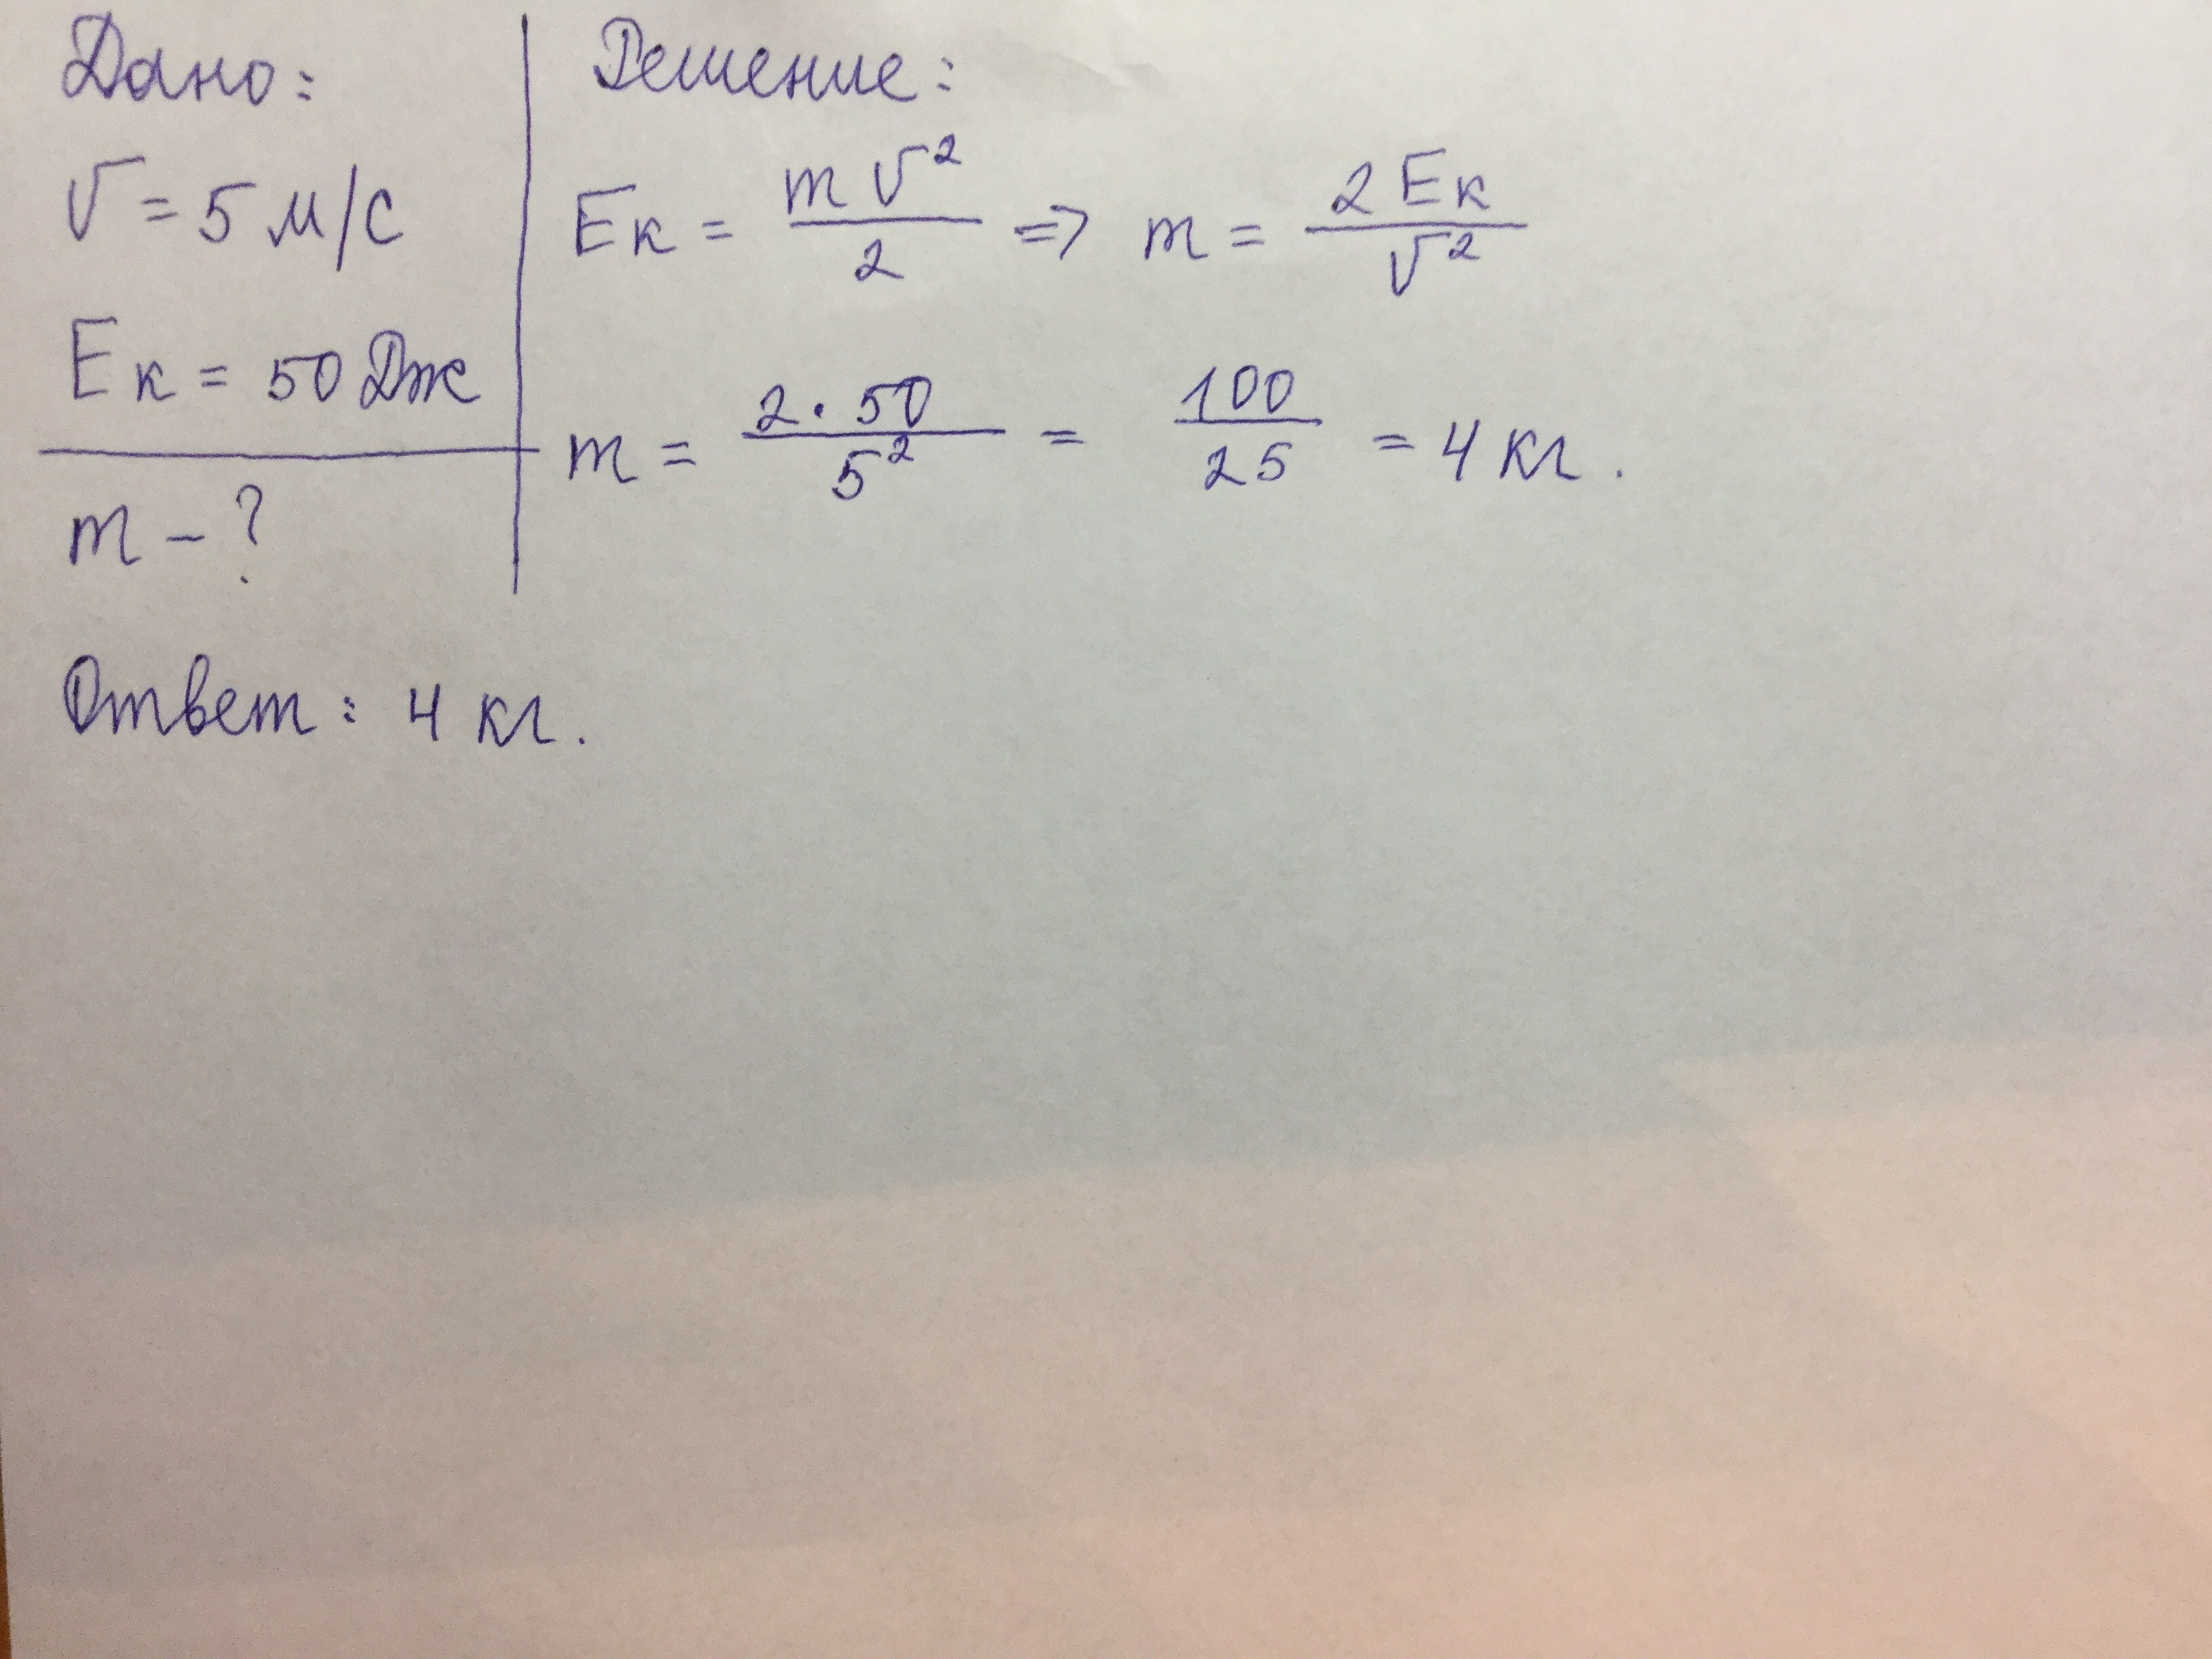 Дано:
V = 5 м/с
Eк = 50 Дж
m - ?
Решение:
Eк = mV²/2 => m = 2Eк/V²
m = 2·50/5² = 100/25 = 4 кг.
Ответ: 4 кг.